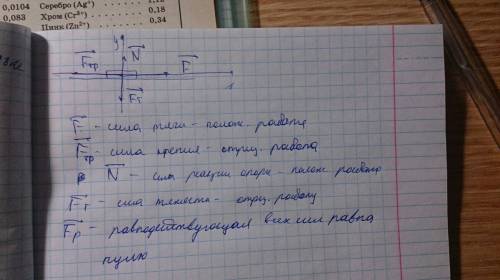 0,0104 Серебро (Ag⁺)
0,083 Хром (Cr³⁺) 0,18
Цинк (Zn²⁺) 0,34
y
N
Fтр F
x
Fт
F - сила тяги - полож. работа
Fтр - сила трения - отриц. работа
N - сила реакции опоры - полож работа
Fт - сила тяжести - отриц. работу
Fр - равнодействующая всех сил равна
нулю